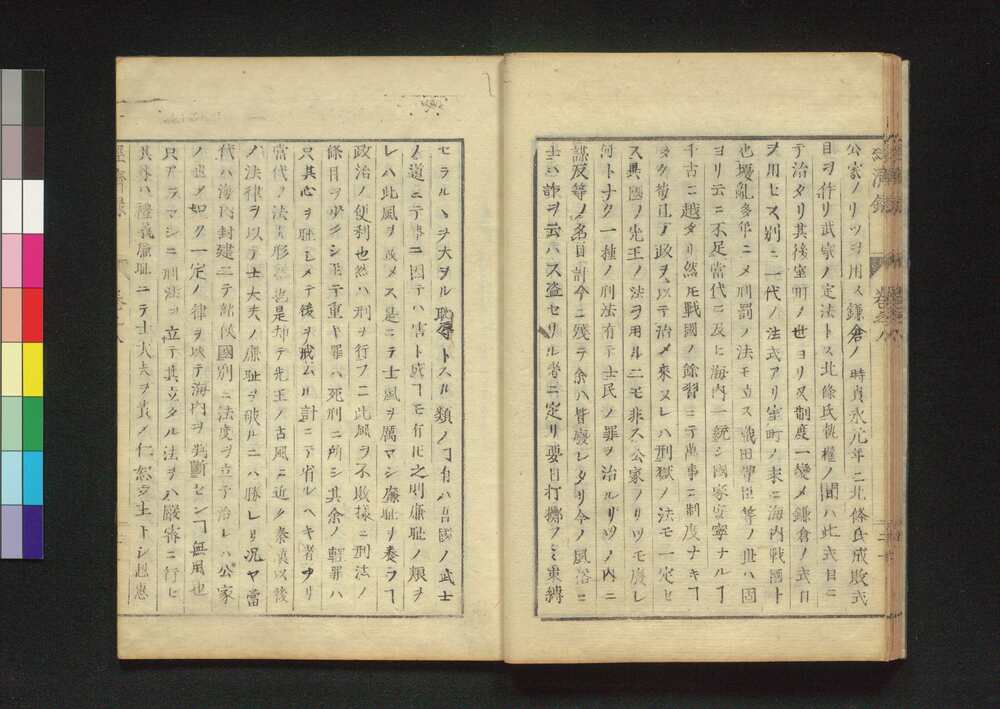 公家ノリツヲ用ス鎌倉ノ時貞永元年ニ北條氏成敗式
目ヲ作リ武家ノ定法トス北條氏執權ノ間ハ此式目ニ
テ治タリ其後室町ノ世ヨリ又制度一變メ鎌倉ノ式目
ヲ用ヒス別ニ一代ノ法式アリ室町ノ末ニ海内戰國ト
也壞亂多年ニメ刑罰ノ法モ立ス織田豐臣等ノ世ハ固
ヨリ云ニ不足當代ニ及ヒ海内一統シ國家安寧ナルヿ
千古ニ越タリ然𪜈戰國ノ餘習ニテ萬事ニ制度ナキヿ
多ク苟且ノ政ヲ以テ治メ來ヌレハ刑獄ノ法モ一定セ
ス異國ノ先王ノ法ヲ用ルニモ非ス公家ノリツモ廢レ
何トナク一種ノ刑法有テ士民ノ罪ヲ治ルリツノ内ニ
謀反等ノ名目計今ニ殘テ余ハ皆廢レタリ今ノ風俗ニ
士ハ詐ヲ云ハス盗セサル者ニ定リ要目打擲ノミ束縛
セラルヽヲ大ヲル耻辱トスル類ノヿ有ハ吾國ノ武士
ノ道ニテ事ニ因テハ害ト成ヿモ有𪜈之則廉耻ノ類ヲ
レハ此風ヲ改メス是ニテ士風ヲ厲マシ廉耻ヲ養フヿ
政治ノ便利也然ハ刑ヲ行フニ此風ヲ不敗樣ニ刑法ノ
條目ヲ少クシ至テ重キ罪ハ死刑ニ所シ其余ノ輕罪ハ
只其心ヲ耻シメテ後ヲ戒ムル計ニテ省ルヘキ者ナリ
當代ノ法大形然也是却テ先王ノ古風ニ近ク秦漢以後
ノ法律ヲ以テ士大夫ノ廉耻ヲ破ルニハ勝レリ況ヤ當
代ハ海内封建ニテ諸侯國別ニ法度ヲ立テ治レハ公家
ノ世ノ如ク一定ノ律ヲ以テ海内ヲ断センヿ無用也
只アラマシニ刑法ヲ立テ其立タル法ヲハ嚴密ニ行ヒ
其外ハ禮義廉耻ニテ士大夫ヲ養ノ仁恕ヲ主トシ忠
經濟録
卷之八